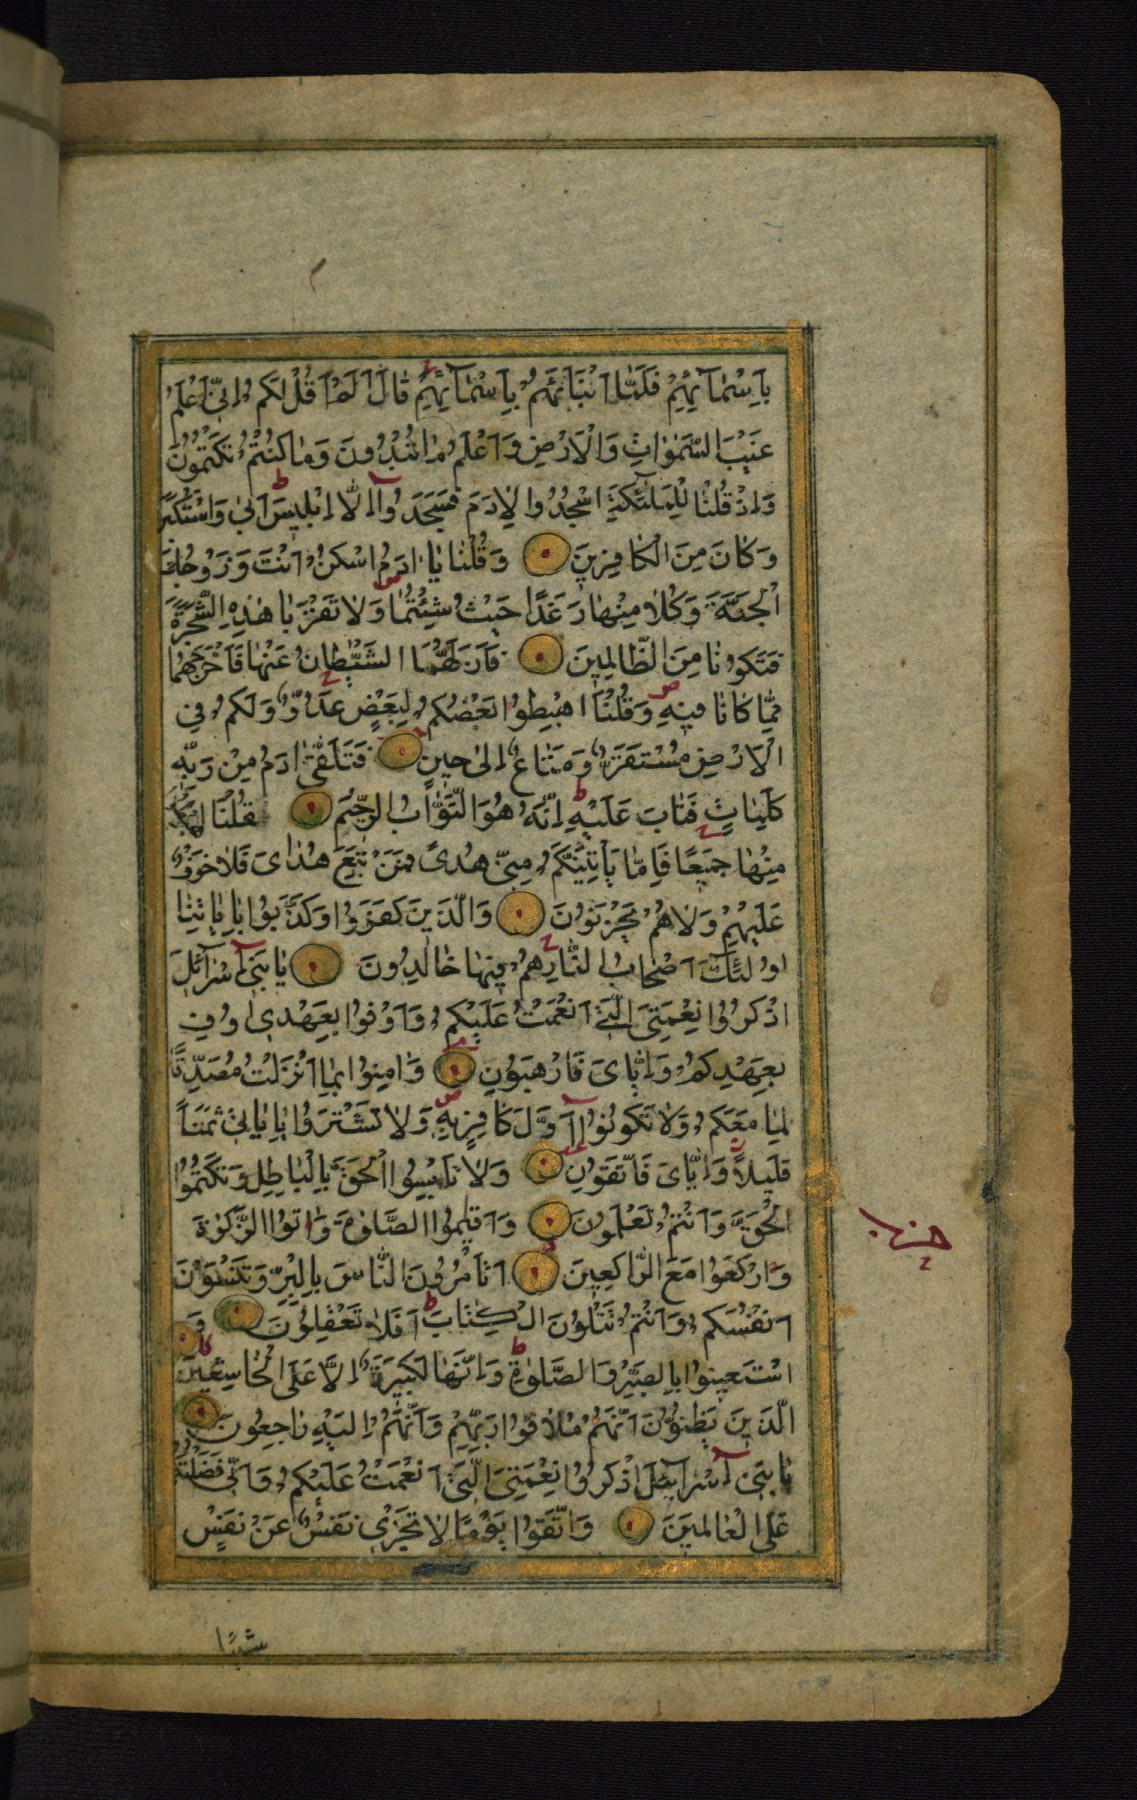 بِاَسْمَآئِهِمْ فَلَمَّا اَنْبَاَهُمْ بِاَسْمَآئِهِمْ قَالَ اَلَمْ اَقُلْ لَكُمْ اِنِّىٓ اَعْلَمُ
غَيْبَ السَّمٰوَاتِ وَالْاَرْضِ وَاَعْلَمُ مَا تُبْدُونَ وَمَا كُنْتُمْ تَكْتُمُونَ
وَاِذْ قُلْنَا لِلْمَلٰٓئِكَةِ اسْجُدُوا لِاٰدَمَ فَسَجَدُوٓا اِلَّآ اِبْلِيسَ اَبٰى وَاسْتَكْبَرَ
وَكَانَ مِنَ الْكَافِرِينَ وَقُلْنَا يَا اٰدَمُ اسْكُنْ اَنْتَ وَزَوْجُكَ
الْجَنَّةَ وَكُلَا مِنْهَا رَغَدًا حَيْثُ شِئْتُمَا وَلَا تَقْرَبَا هٰذِهِ الشَّجَرَةَ
فَتَكُونَا مِنَ الظَّالِمِينَ فَاَزَلَّهُمَا الشَّيْطَانُ عَنْهَا فَاَخْرَجَهُمَا
مِمَّا كَانَا فِيهِ وَقُلْنَا اهْبِطُوا بَعْضُكُمْ لِبَعْضٍ عَدُوٌّ وَلَكُمْ فِى
الْاَرْضِ مُسْتَقَرٌّ وَمَتَاعٌ اِلٰى حِينٍ فَتَلَقّٰىٓ اٰدَمُ مِنْ رَبِّهِ
كَلِمَاتٍ فَتَابَ عَلَيْهِ اِنَّهُ هُوَ التَّوَّابُ الرَّحِيمُ قُلْنَا اهْبِطُوا
مِنْهَا جَمِيعًا فَاِمَّا يَاْتِيَنَّكُمْ مِنِّى هُدًى فَمَنْ تَبِعَ هُدَاىَ فَلَا خَوْفٌ
عَلَيْهِمْ وَلَا هُمْ يَحْزَنُونَ وَالَّذِينَ كَفَرُوا وَكَذَّبُوا بِاٰيَاتِنَا
اُولٰٓئِكَ اَصْحَابُ النَّارِ هُمْ فِيهَا خَالِدُونَ يَا بَنِىٓ اِسْرَآئِلَ
اذْكُرُوا نِعْمَتِىَ الَّتِىٓ اَنْعَمْتُ عَلَيْكُمْ وَاَوْفُوا بِعَهْدِىٓ اُوفِ
بِعَهْدِكُمْ وَاِيَّاىَ فَارْهَبُونِ وَاٰمِنُوا بِمَا اَنْزَلْتُ مُصَدِّقًا
لِمَا مَعَكُمْ وَلَا تَكُونُوٓا اَوَّلَ كَافِرٍ بِهِ وَلَا تَشْتَرُوا بِاٰيَاتِى ثَمَنًا
قَلِيلًا وَاِيَّاىَ فَاتَّقُونِ وَلَا تَلْبِسُوا الْحَقَّ بِالْبَاطِلِ وَتَكْتُمُوا
الْحَقَّ وَاَنْتُمْ تَعْلَمُونَ وَاَقِيمُوا الصَّلٰوةَ وَاٰتُوا الزَّكٰوةَ
وَارْكَعُوا مَعَ الرَّاكِعِينَ اَتَاْمُرُونَ النَّاسَ بِالْبِرِّ وَتَنْسَوْنَ
اَنْفُسَكُمْ وَاَنْتُمْ تَتْلُونَ الْكِتَابَ اَفَلَا تَعْقِلُونَ وَ
اسْتَعِينُوا بِالصَّبْرِ وَالصَّلٰوةِ وَاِنَّهَا لَكَبِيرَةٌ اِلَّا عَلَى الْخَاشِعِينَ
الَّذِينَ يَظُنُّونَ اَنَّهُمْ مُلَاقُوا رَبِّهِمْ وَاَنَّهُمْ اِلَيْهِ رَاجِعُونَ
يَا بَنِىٓ اِسْرَآئِلَ اذْكُرُوا نِعْمَتِىَ الَّتِىٓ اَنْعَمْتُ عَلَيْكُمْ وَاَنِّى فَضَّلْتُكُمْ
عَلَى الْعَالَمِينَ وَاتَّقُوا يَوْمًا لَا تَجْزِى نَفْسٌ عَنْ نَفْسٍ
حزب
شيئا